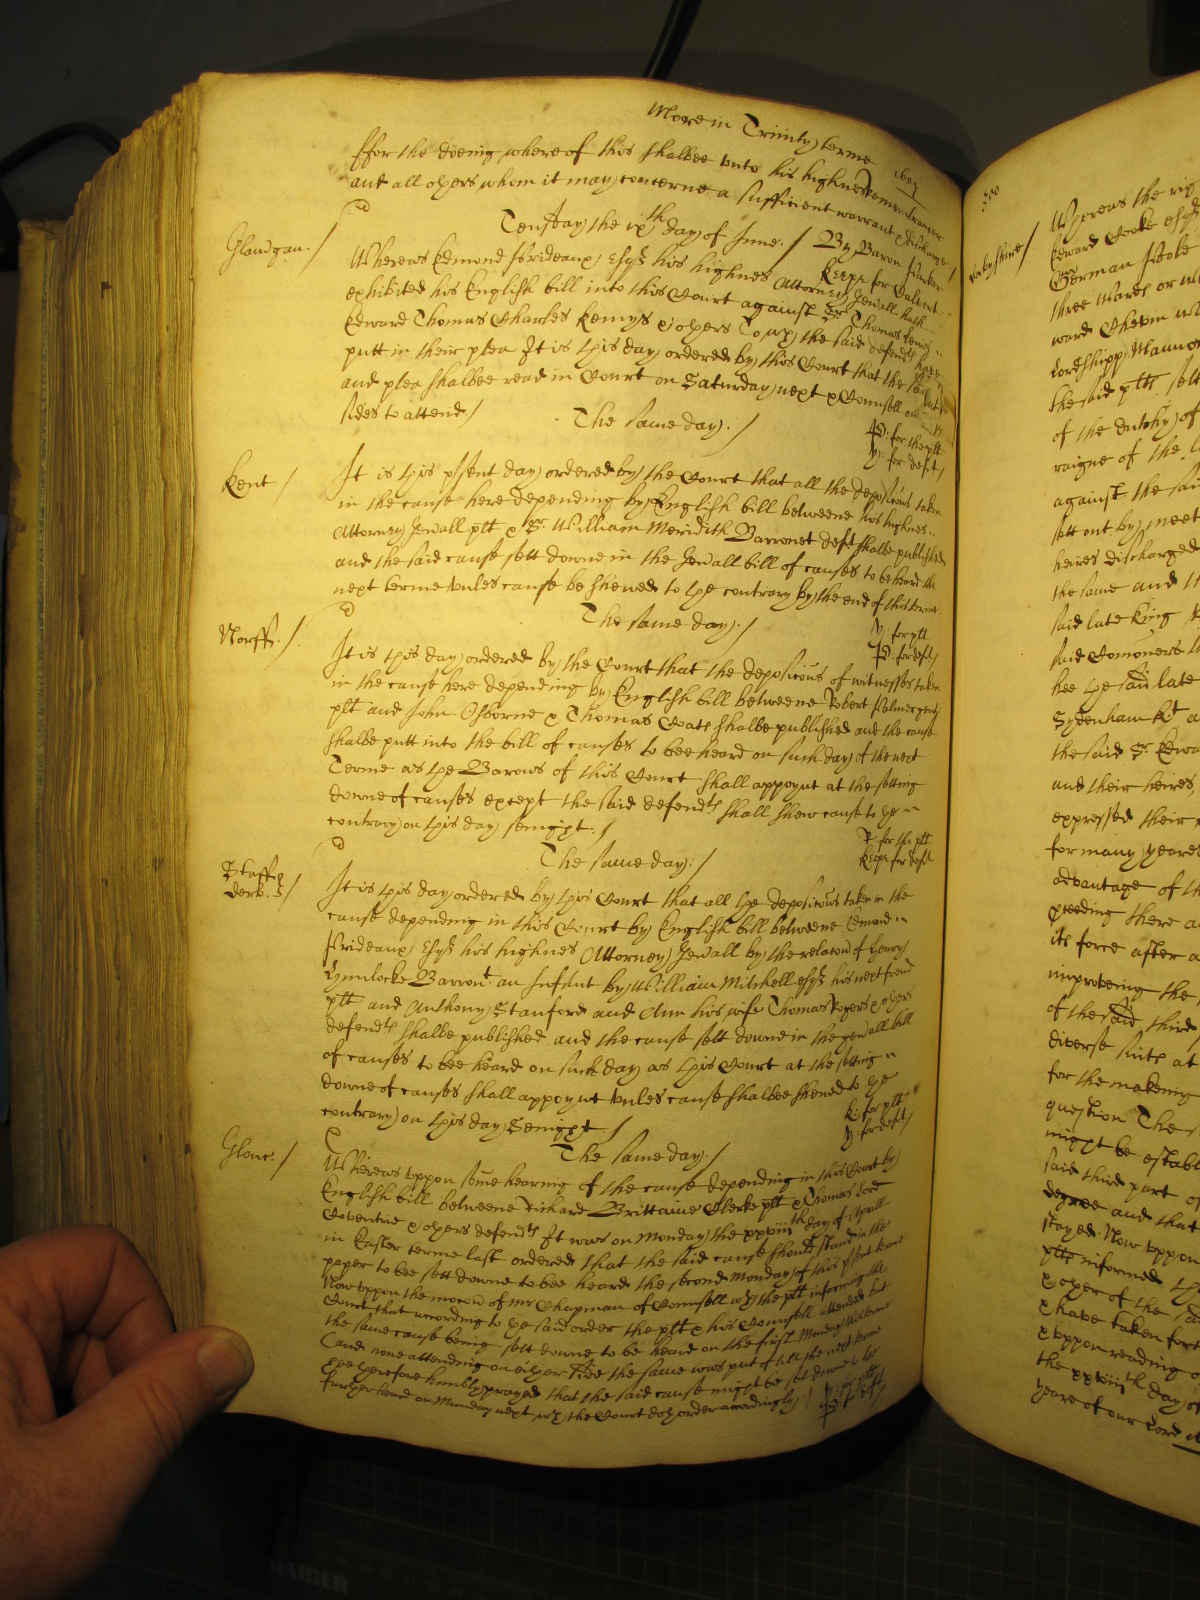 More in Trinity terme 1657
ffor the doeing whereof this shalbee unto his highnes Remembrancer
and all others whom it may concerne a sufficient warrant & discharge /
Glamorgan. /
Teusday the ixth day of June. / By Baron Parker
Keepe for Calvert
Whereas Edmond Prideaux Esqr his highnes Attorney Gen'all hath
exhibited his English bill into this Court against Sr Thomas Lewis
Edward Thomas Charles Kemys & others To wch the said defendts have
putt in their plea It is this day ordered by this Court that the said
and plea shalbee read in Court on Saturday next & Counsell on
sides to attend /
P: for the plt
Y: for deft /
The same day. /
Kent /
It is this p'sent day ordered by the Court that all the deposic'ons taken
in the cause here depending by English bill betweene his highnes
Attorney Gen'all plt & Sr William Meridith Barronet deft shalbe published
and the said cause sett downe in the Gen'all bill of causes to be heard the
next terme unles cause be shewed to the contrary by the end of this terme
The same day. /
Y: for plt
P: for deft /
Norff. /
It is this day ordered by the Court that the deposic'ons of witnesses taken
in the cause here depending by English bill betweene Robert Palmer gent
plt and John Osborne & Thomas Coats shalbe published and the cause
shalbe putt into the bill of causes to bee heard on such day of the next
Terme as the Barons of this Court shall appoynt at the setting
downe of causes except the said defendts shall shew cause to the
contrary on this day senight. /
R for the plt
Keepe for deft
The same day. /
Staff &
Derb. /
It is this day ordered by this Court that all the deposic'ons taken in the
cause depending in this Court by English bill betweene Edmond
Prideaux Esqr his highnes Attorney Gen'all by the relac'on of Henry
Hunlocke Barront an Infant by William Mitchell esqr his next frend
plt and Anthony Stanford and Ann his wife Thomas Rogers & others
defendts shalbe published and the cause sett downe in the gen'all bill
of causes to bee heard on such day as this Court at the setting
downe of causes shall appoynt unles cause shalbee shewed to the
contrary on this day Senight. /
K: for plt
Y: for deft /
The same day. /
Glouc. /
Whereas uppon some hearing of the cause depending in this Court by
English bill betweene Richard Brittaine Clerke plt & Thomas Lord
Coventrie & others defendts It was on Monday the xxviiith day of Aprill
in Easter terme last ordered that the said cause should stand in the
paper to bee sett downe to bee heard the second Monday of this p'sent terme
Now uppon the moc'on of Mr Chapman of Counsell wth the plt informing the
Court that according to the said order the plt & his Counsell attended but
the same cause being sett downe to be heard on the first Monday this terme
(and none attending on either side the same was put of till the next terme
& he therefore humbly prayed that the said cause might be set downe to be
further heard on Munday next wch the Court doth order accordingly /
Y: for plt
P: f deft
350
Derbyshire /
Whereas the rig
Edward Cooke esqr
German Poole
three Mares or
ward Chetwin
Lordshipp Mannor
the said plts sett
of the dutchy of
raigne of the
against the said
sett out by meet
heires discharged
the same and th
said late King
said Com'oners
hee the said late
Sydenham Kt a
the said Sr Edwa
and their heires
expressed their
for many yeares
advantage of th
p'ceeding there a
its force after a
improveing the
of the said third
diverse suits at
for the makeing
question The s
might be establ
said third part of
degree and that
stayed Now uppon
plts informed th
& other of the
& have taken fort
& uppon reading o
the xxviiith day of
yeare of our Lord